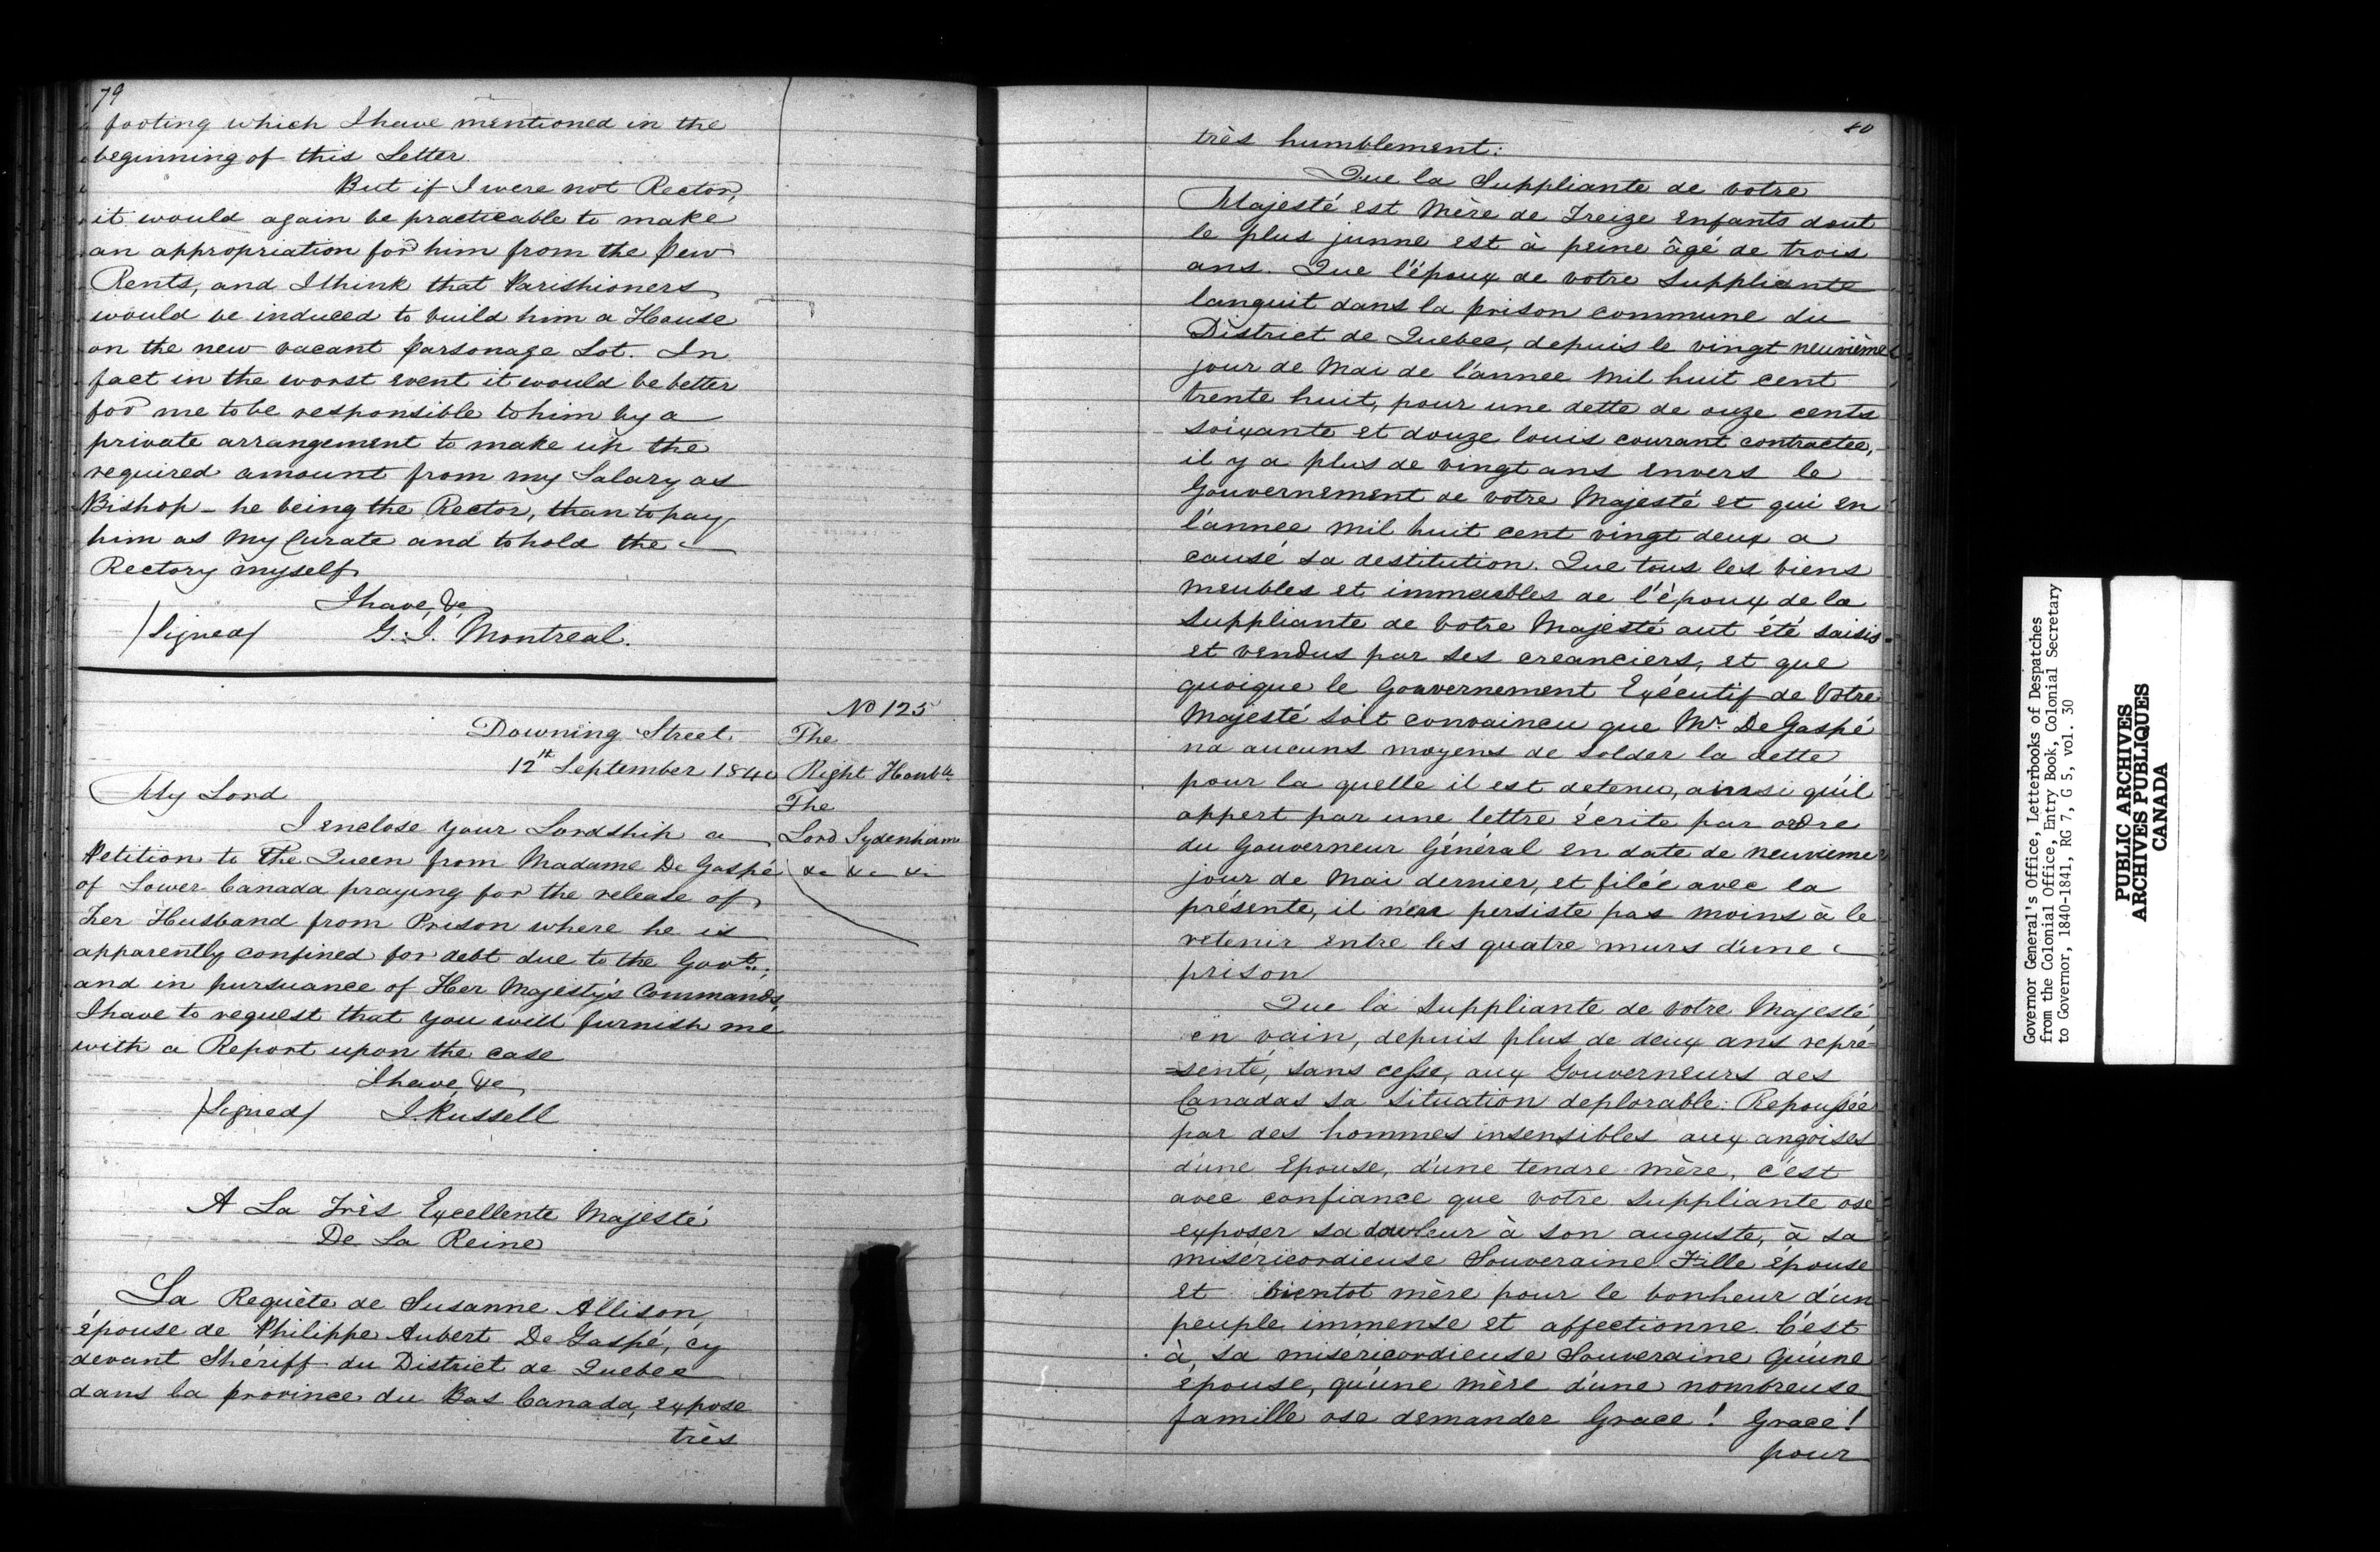 79
footing which I have mentioned in the
beginning of this Letter.
But if I were not Rector,
it would again be practicable to make
an appropriation for him from the Pew
Rents, and I think that Parishioners
would be induced to build him a House
on the new vacant Parsonage Lot. In
fact in the worst event it would be better
for me to be responsible to him by a
private arrangement to make up the
required amount from my Salary as
Bishop - he being the Rector, than to pay
him as My Curate and to hold the
Rectory myself.
I have, &c
/Signed/ G. J. Montreal.
No 125
The
Right Honble
The
Lord Sydenham
&c &c &c
Downing Street.
12th September 1840
My Lord
I enclose your Lordship a
Petition to The Queen from Madame De Gaspé
of Lower Canada praying for the release of
her Husband from Prison where he is
apparently confined for debt due to the Govt.;
and in pursuance of Her Majesty's Commands,
I have to request that you will furnish me
with a Report upon the case
I have, &c
/Signed/ J. Russell
A La Très Excellente Majesté
De La Reine
La Requète de Susanne Allison,
épouse de Philippe Aubert De Gaspé, cy
devant Shériff du District de Quebec
dans la province du Bas Canada, expose
très
80
très humblement:
Que la Suppliante de votre
Majesté est Mère de Treize enfants dont
le plus junne est à peine âgé de trois
ans. Que l'époux de votre Suppliante
languit dans la prison commune du
District de Quebec, depuis le vingt neuvième
jour de Mai de l'annee Mil huit cent
trente huit, pour une dette de onze cents
soixante et douze louis courant contractee,
il y a plus de vingt ans envers le
Gouvernement de votre Majesté et qui en
l'annee Mil huit cent vingt deux a
causé sa destitution. Que tous les biens
meubles et immeubles de l'époux de la
Suppliante de Votre Majesté ont été saisis
et vendus par ses creanciers, et que
quoique le Gouvernement Exécutif de Votre
Majesté soit convaincu que Mr. De Gaspé
na aucuns moyens de solder la dette
pour la quelle il est detenu, ainsi qu'il
appert par une lettre écrite par ordre
du Gouverneur Général en date de neuvieme
jour de Mai dernier, et filée avec la
présente, il n'en persiste pas moins à le
retenir entre les quatre murs d'une
prison
Que la Suppliante de votre Majesté
en vain, depuis plus de deux ans repré-
=senté, sans cesse, aux Gouverneurs des
Canadas sa situation deplorable: Repoussée
par des hommes insensibles aux angoises
d'une Epouse, d'une tendre Mère, c'est
avec confiance que votre Suppliante ose
exposer sa douleur à son auguste, à sa
miséricordieuse Souveraine Fille épouse
et bientot mère pour le bonheur d'un
peuple immense et affectionne. C'est
à sa misericordieuse Souveraine qu'une
épouse, qu'une mère d'une nombreuse
famille ose demander Grace! Grace!
pour
Governor General's Office, Letterbooks of Despatches
from the Colonial Office, Entry Book, Colonial Secretary
to Governor, 1840-1841, RG 7, G 5, vol. 30
PUBLIC ARCHIVES
ARCHIVES PUBLIQUES
CANADA